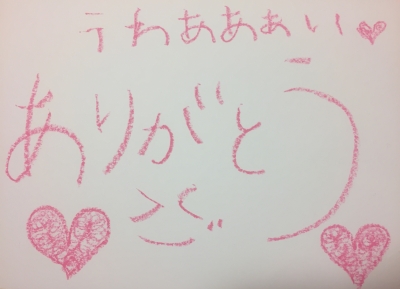 うわあああい
ありがとう
ぞ